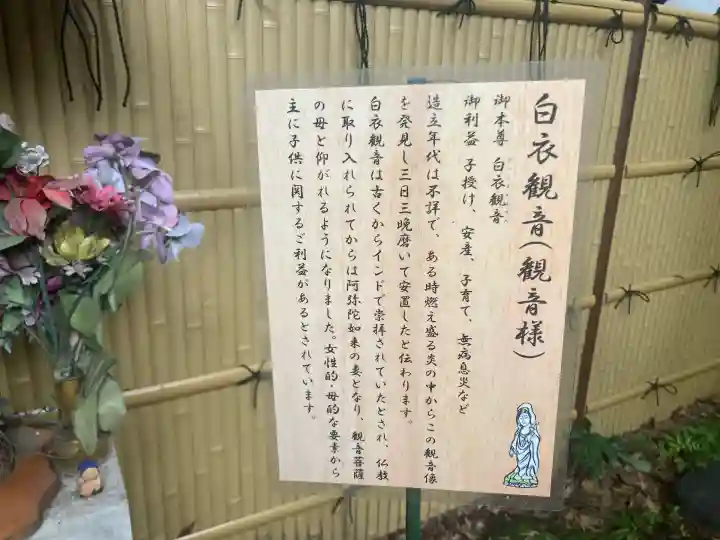 白衣観音(観音様)
御本尊 白衣観音
御利益 子授け、安産、子育て、無病息災など
造立年代は不詳で、ある時燃え盛る炎の中からこの観音像
を発見し三日三晩磨いて安置したと伝わります。
白衣観音は古くからインドで崇拝されていたとされ、仏教
に取り入れられてからは阿弥陀如来の妻となり、観音菩薩
の母と仰がれるようになりました。女性的・母的な要素から
主に子供に関するご利益があるとされています。